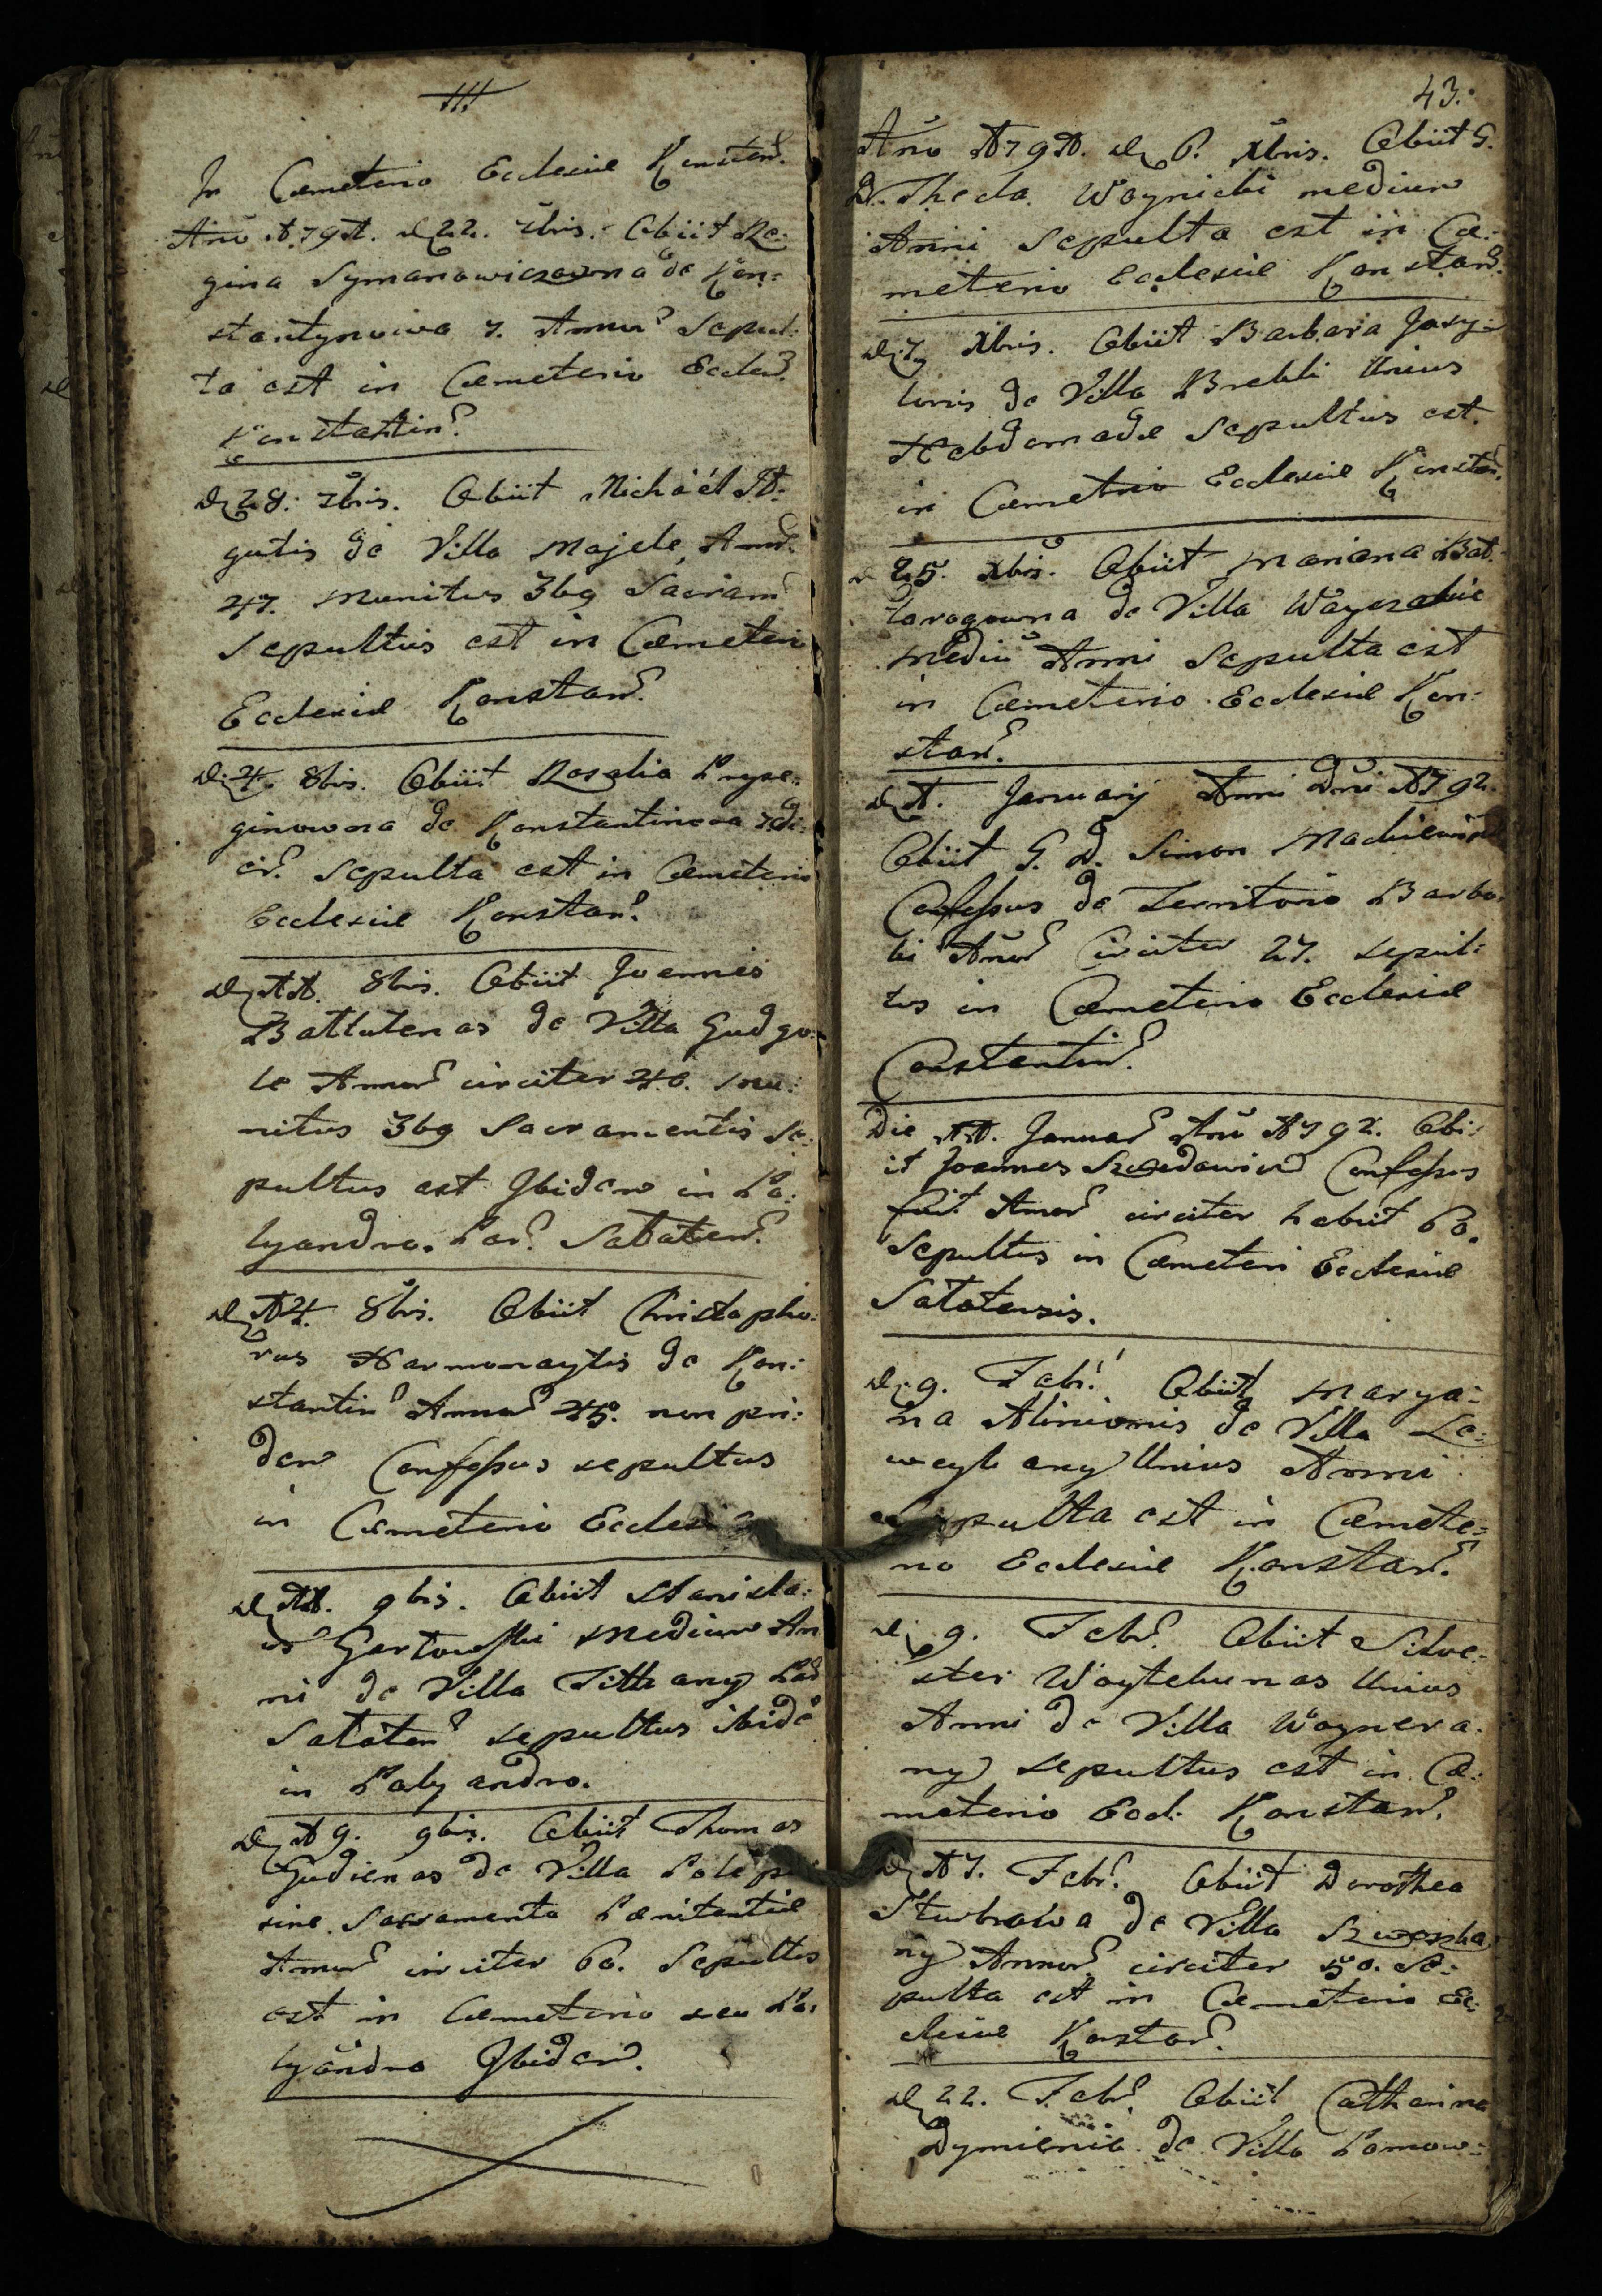 In Cæmeterio Ecclesiæ Konstan.
Año 1791. d 22. 7bris. Obiit Re:
gina Symanowiczowna de Kon:
stantynowa 7. Annor Sepul:
ta est in Cæmeterio Eccles.
Konstantin.
d 28. 7bris. Obiit Michäél
gutis de Villa Majele Annor
47. munitus 3bq Sacram
Sepultus est in Cæmeteri
Ecclesiæ Konstan.
d. 4. 8bris. Obiit Rosalia
ginowna de Konstantinowa
Sepulta est in Cæmeterio
Ecclesiæ Konstan.
d 11. 8bris. Obiit Joannes
Battutenas de Villa Gudgo:
le Annor circiter 40. mu:
nitus 3bq Sacramentis Se:
pultus est Ibidem in Po:
lyandro. Par. Sataten.
d 14. 8bris. Obiit Christopho:
rus Harmonaytis de Kon:
stantin Annor 45. non pri:
dem Confessus sepultus
in Cæmeterio Ecclesiæ
d 11. 9bris. Obiit Stanisla:
us Gertowski medium An
ni de Villa Tittkany Par
Sataten sepultus ibidé
in Polyandro.
d 19. 9bris. Obiit Thomas
Gudienas de Villa
sine Sacramento Pænitentiæ
Annor circiter 60. Sepultus
est in Cæmeterio seu Po:
lyandro Ibidem.
43.
Año 1791. d 6. Xbris. Obiit G.
D. Thecla Woynicki medium
Anni Sepulta est in Cæ:
meterio Ecclesiæ Konstan.
d. 7 Xbris. Obiit Barbara Jasy:
lunis de Villa Brekli Unius
Hebdomadæ Sepultus est
in Cæmetrio Ecclesiæ Konstan
d 25. Xbris. Obiit Mariana Bat:
taragowna de Villa
mediu Anni Sepulta est
in Cæmeterio Ecclesiæ Kon:
stan.
d 1. Januarij Anni Dñi 1792
Obiit G. D. Simon
Confessus de Territorio Barbo:
Añor Circiter 27. sepul:
tus in Cæmeterio Ecclesiæ
Constantin.
Die 11. Januar Añi 1792. Obi:
it Joannes Confessus
fuit Annor circiter habuit 60.
Sepultus in Cæmeteri Ecclesiæ
Satatensis.
d. 9. Febr. Obiit Marya:
na Alinionis de Villa Le:
weyk any Unius Anni
Sepulta est in Cæmete:
rio Ecclesiæ Konstan.
d. 9. Febr. Obiit Silve:
ster Woytekunas Unius
Anni de Villa Woynera:
ny sepultus est in Cæ:
meterio Eccl. Konstan.
d 17. Febr. Obiit Dorothea
de Villa
ny Annor circiter 50. Se:
pulta est in Cæmeterio Ec:
clesiæ Konstan.
d 22. Febr. Obiit Catharina
Dymienie de Villa Pomow: